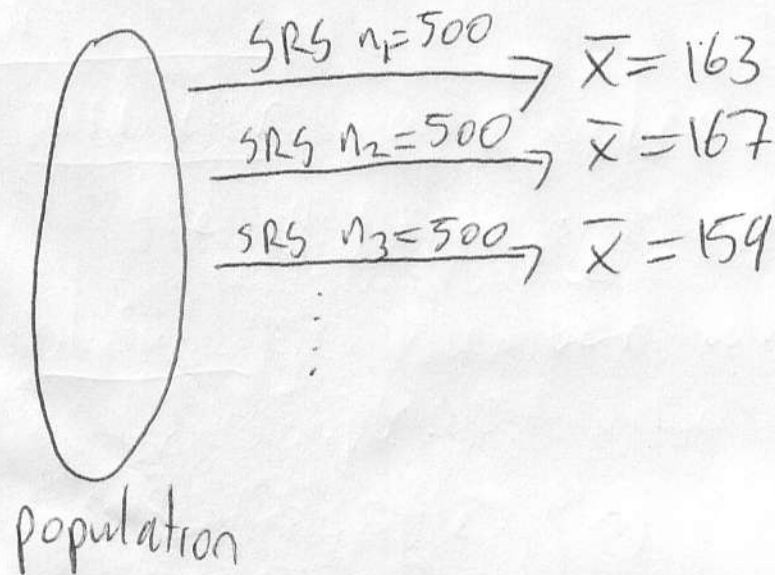 SRS n₁=500 x̄ = 163
SRS n₂=500 x̄ = 167
SRS n₃=500 x̄ = 159
population